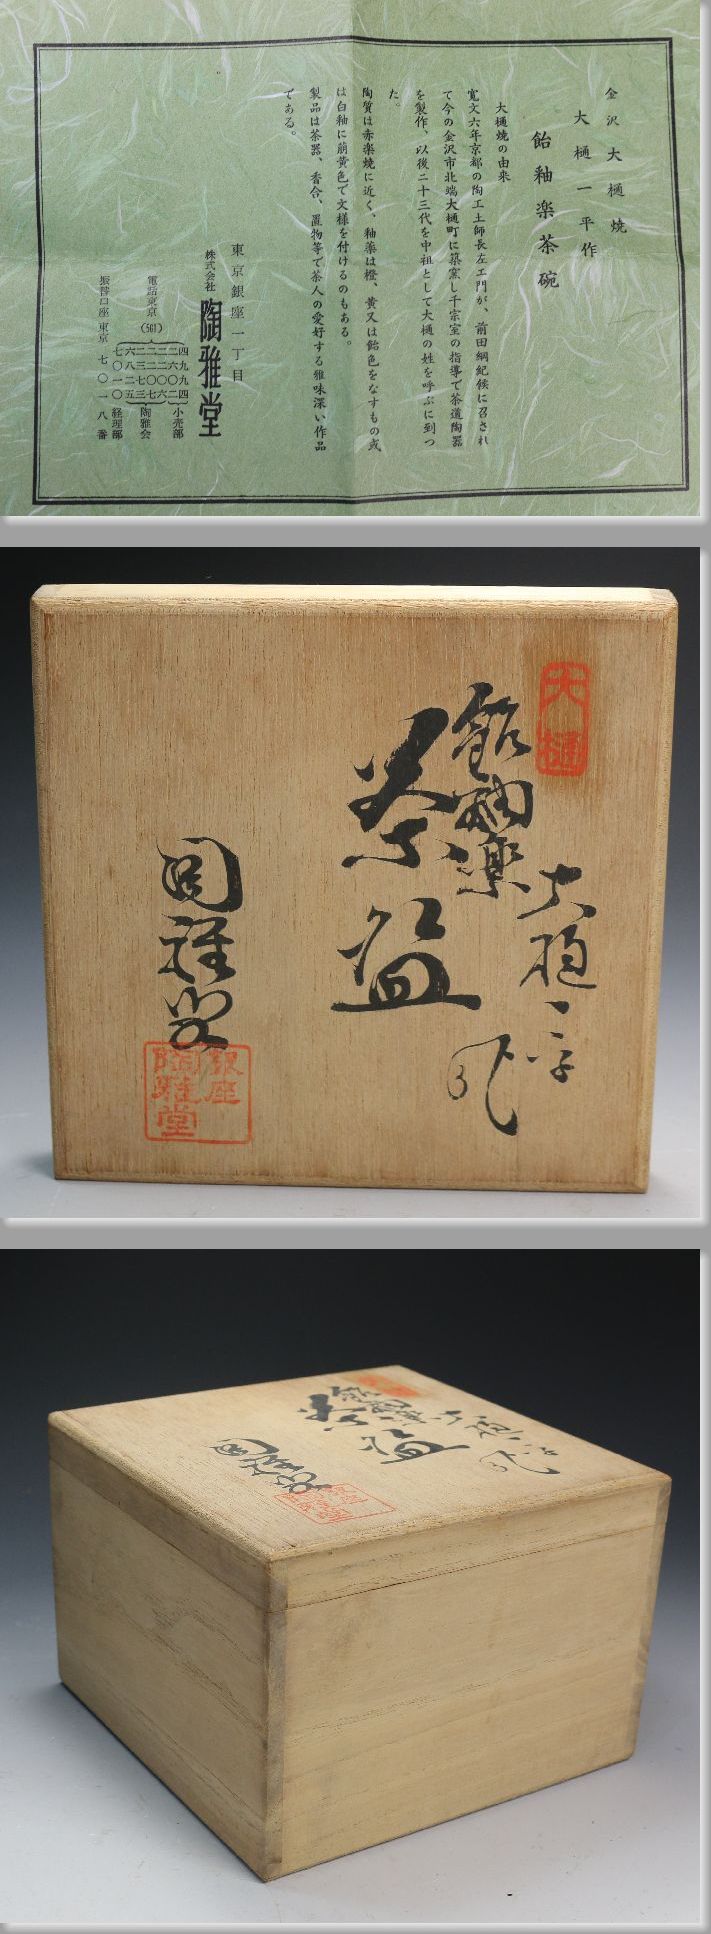 金沢大樋焼
大樋一平作
飴釉楽茶碗
大樋焼の由来
寛文六年京都の陶工土師長左エ門が、前田綱紀候に召され
て今の金沢市北端大樋町に築窯し千宗室の指導で茶道陶器
を製作、以後二十三代を中祖として大樋の姓を呼ぶに到つ
た。
陶質は赤楽焼に近く、釉薬は橙、黄又は飴色をなすもの或
は白釉に筋黄色で文様を付けるのもある。
製品は茶器、香合、置物等で茶人の愛好する雅味深い作品
である。
東京銀座一丁目
株式会社 陶雅堂
電話東京(561)
小売部
陶雅会
経理部
振替口座 東京 七〇一八番
大樋
飴釉楽
茶盌
大樋一平
陶雅堂
銀座
陶雅堂